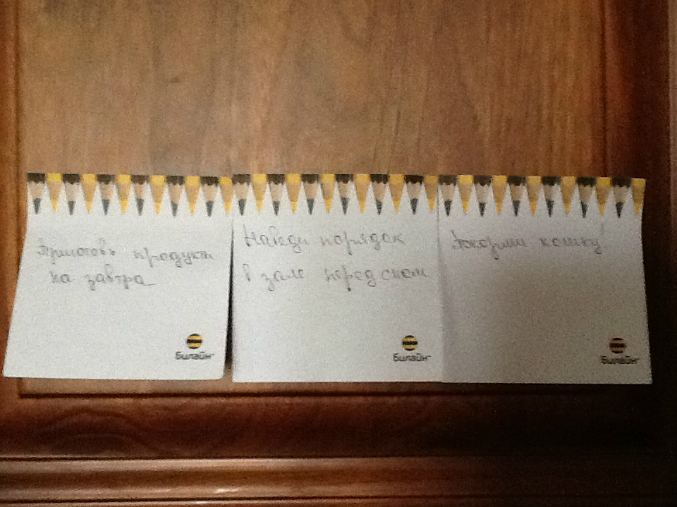 Приготовь продукты
на завтра
Билайн
Наведи порядок
в зале перед сном
Билайн
Покорми кошку!
Билайн